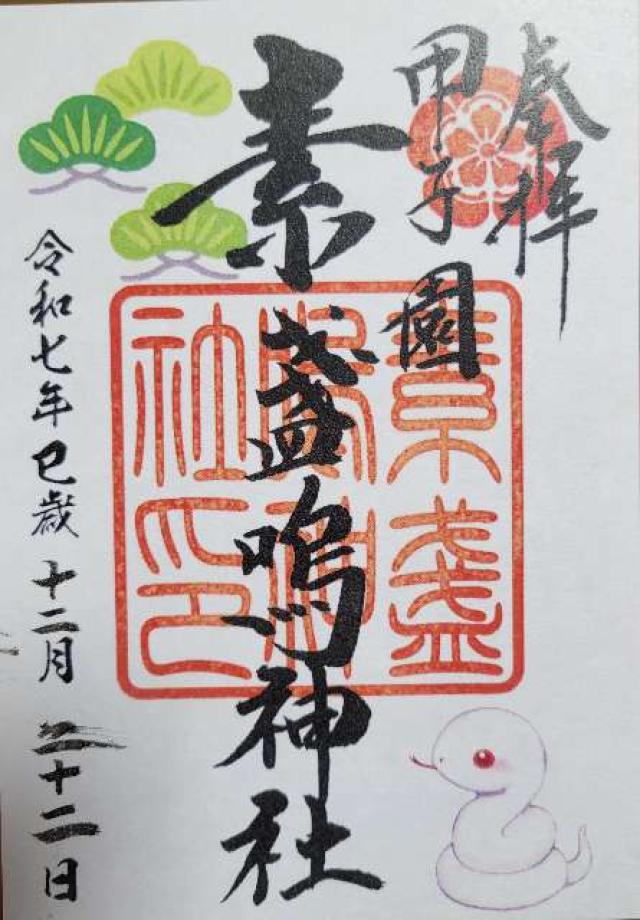 奉拝
甲子園
素盞嗚神社
素盞
嗚神
社印
令和七年巳歳十二月二十二日